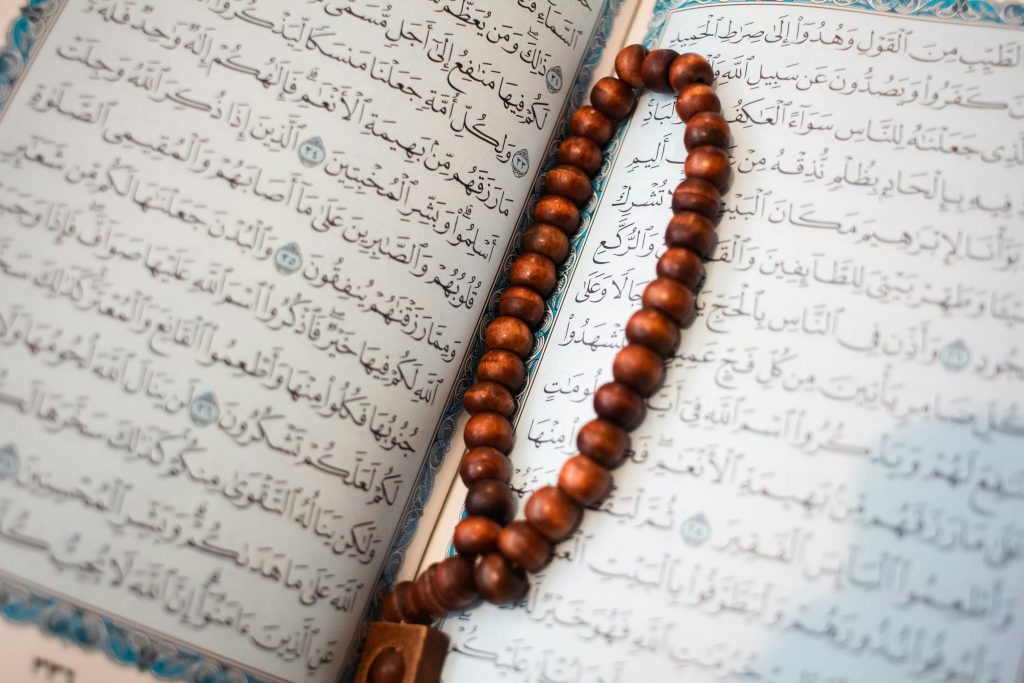 ٱلطَّيِّبِ مِنَ ٱلۡقَوۡلِ وَهُدُوٓاْ إِلَىٰ صِرَٰطِ ٱلۡحَمِيدِ
كَفَرُواْ وَيَصُدُّونَ عَن سَبِيلِ ٱللَّهِ
ٱلَّذِي جَعَلۡنَٰهُ لِلنَّاسِ سَوَآءً ٱلۡعَٰكِفُ وَٱلۡبَادِۚ
فِيهِ بِإِلۡحَادِۭ بِظُلۡمٖ نُّذِقۡهُ مِنۡ أَلِيمٖ
بَوَّأۡنَا لِإِبۡرَٰهِيمَ مَكَانَ ٱلۡبَيۡتِ تُشۡرِكۡ
وَطَهِّرۡ بَيۡتِيَ لِلطَّآئِفِينَ وَٱلرُّكَّعِ
وَأَذِّن فِي ٱلنَّاسِ بِٱلۡحَجِّ رِجَالٗا وَعَلَىٰ
كُلِّ ضَامِرٖ يَأۡتِينَ مِن كُلِّ فَجٍّ عَمِيقٖ لِّيَشۡهَدُواْ
مَنَٰفِعَ لَهُمۡ وَيَذۡكُرُواْ ٱسۡمَ ٱللَّهِ فِيٓ مَّعۡلُومَٰتٍ
عَلَىٰ مَا رَزَقَهُم مِّنۢ بَهِيمَةِ ٱلۡأَنۡعَٰمِۖ مِنۡهَا
وَأَطۡعِمُواْ ٱلۡبَآئِسَ ٱلۡفَقِيرَ ٢٨ ثُمَّ
وَلۡيُوفُواْ نُذُورَهُمۡ وَلۡيَطَّوَّفُواْ بِٱلۡبَيۡتِ
حُرُمَٰتِ ٱللَّهِ فَهُوَ خَيۡرٞ
عَلَيۡكُمۡ
ٱلسَّمَآءِ
ذَٰلِكَۖ وَمَن يُعَظِّمۡ
لَكُمۡ فِيهَا مَنَٰفِعُ إِلَىٰٓ أَجَلٖ مُّسَمّٗى
٣٣ وَلِكُلِّ أُمَّةٖ جَعَلۡنَا مَنسَكٗا لِّيَذۡكُرُواْ
مَا رَزَقَهُم مِّنۢ بَهِيمَةِ ٱلۡأَنۡعَٰمِۗ فَإِلَٰهُكُمۡ إِلَٰهٞ وَٰحِدٞ فَلَهُۥٓ
أَسۡلِمُواْۗ وَبَشِّرِ ٱلۡمُخۡبِتِينَ ٣٤ ٱلَّذِينَ إِذَا ذُكِرَ ٱللَّهُ وَجِلَتۡ
قُلُوبُهُمۡ وَٱلصَّٰبِرِينَ عَلَىٰ مَآ أَصَابَهُمۡ وَٱلۡمُقِيمِي ٱلصَّلَوٰةِ
وَمِمَّا رَزَقۡنَٰهُمۡ يُنفِقُونَ ٣٥ وَٱلۡبُدۡنَ جَعَلۡنَٰهَا لَكُم مِّن شَعَٰٓئِرِ
ٱللَّهِ لَكُمۡ فِيهَا خَيۡرٞۖ فَٱذۡكُرُواْ ٱسۡمَ ٱللَّهِ عَلَيۡهَا صَوَآفَّۖ فَإِذَا وَجَبَتۡ
جُنُوبُهَا فَكُلُواْ مِنۡهَا وَأَطۡعِمُواْ ٱلۡقَانِعَ وَٱلۡمُعۡتَرَّۚ كَذَٰلِكَ
لَكُمۡ لَعَلَّكُمۡ تَشۡكُرُونَ ٣٦ لَن يَنَالَ ٱللَّهَ لُحُومُهَا وَلَا
وَلَٰكِن يَنَالُهُ ٱلتَّقۡوَىٰ مِنكُمۡۚ كَذَٰلِكَ سَخَّرَهَا
ٱللَّهَ عَلَىٰ مَا هَدَىٰكُمۡۗ وَبَشِّرِ ٱلۡمُحۡسِنِينَ
عَنِ ٱلَّذِينَ ءَامَنُوٓاْۗ إِنَّ ٱللَّهَ لَا يُحِبُّ
٣٣٦